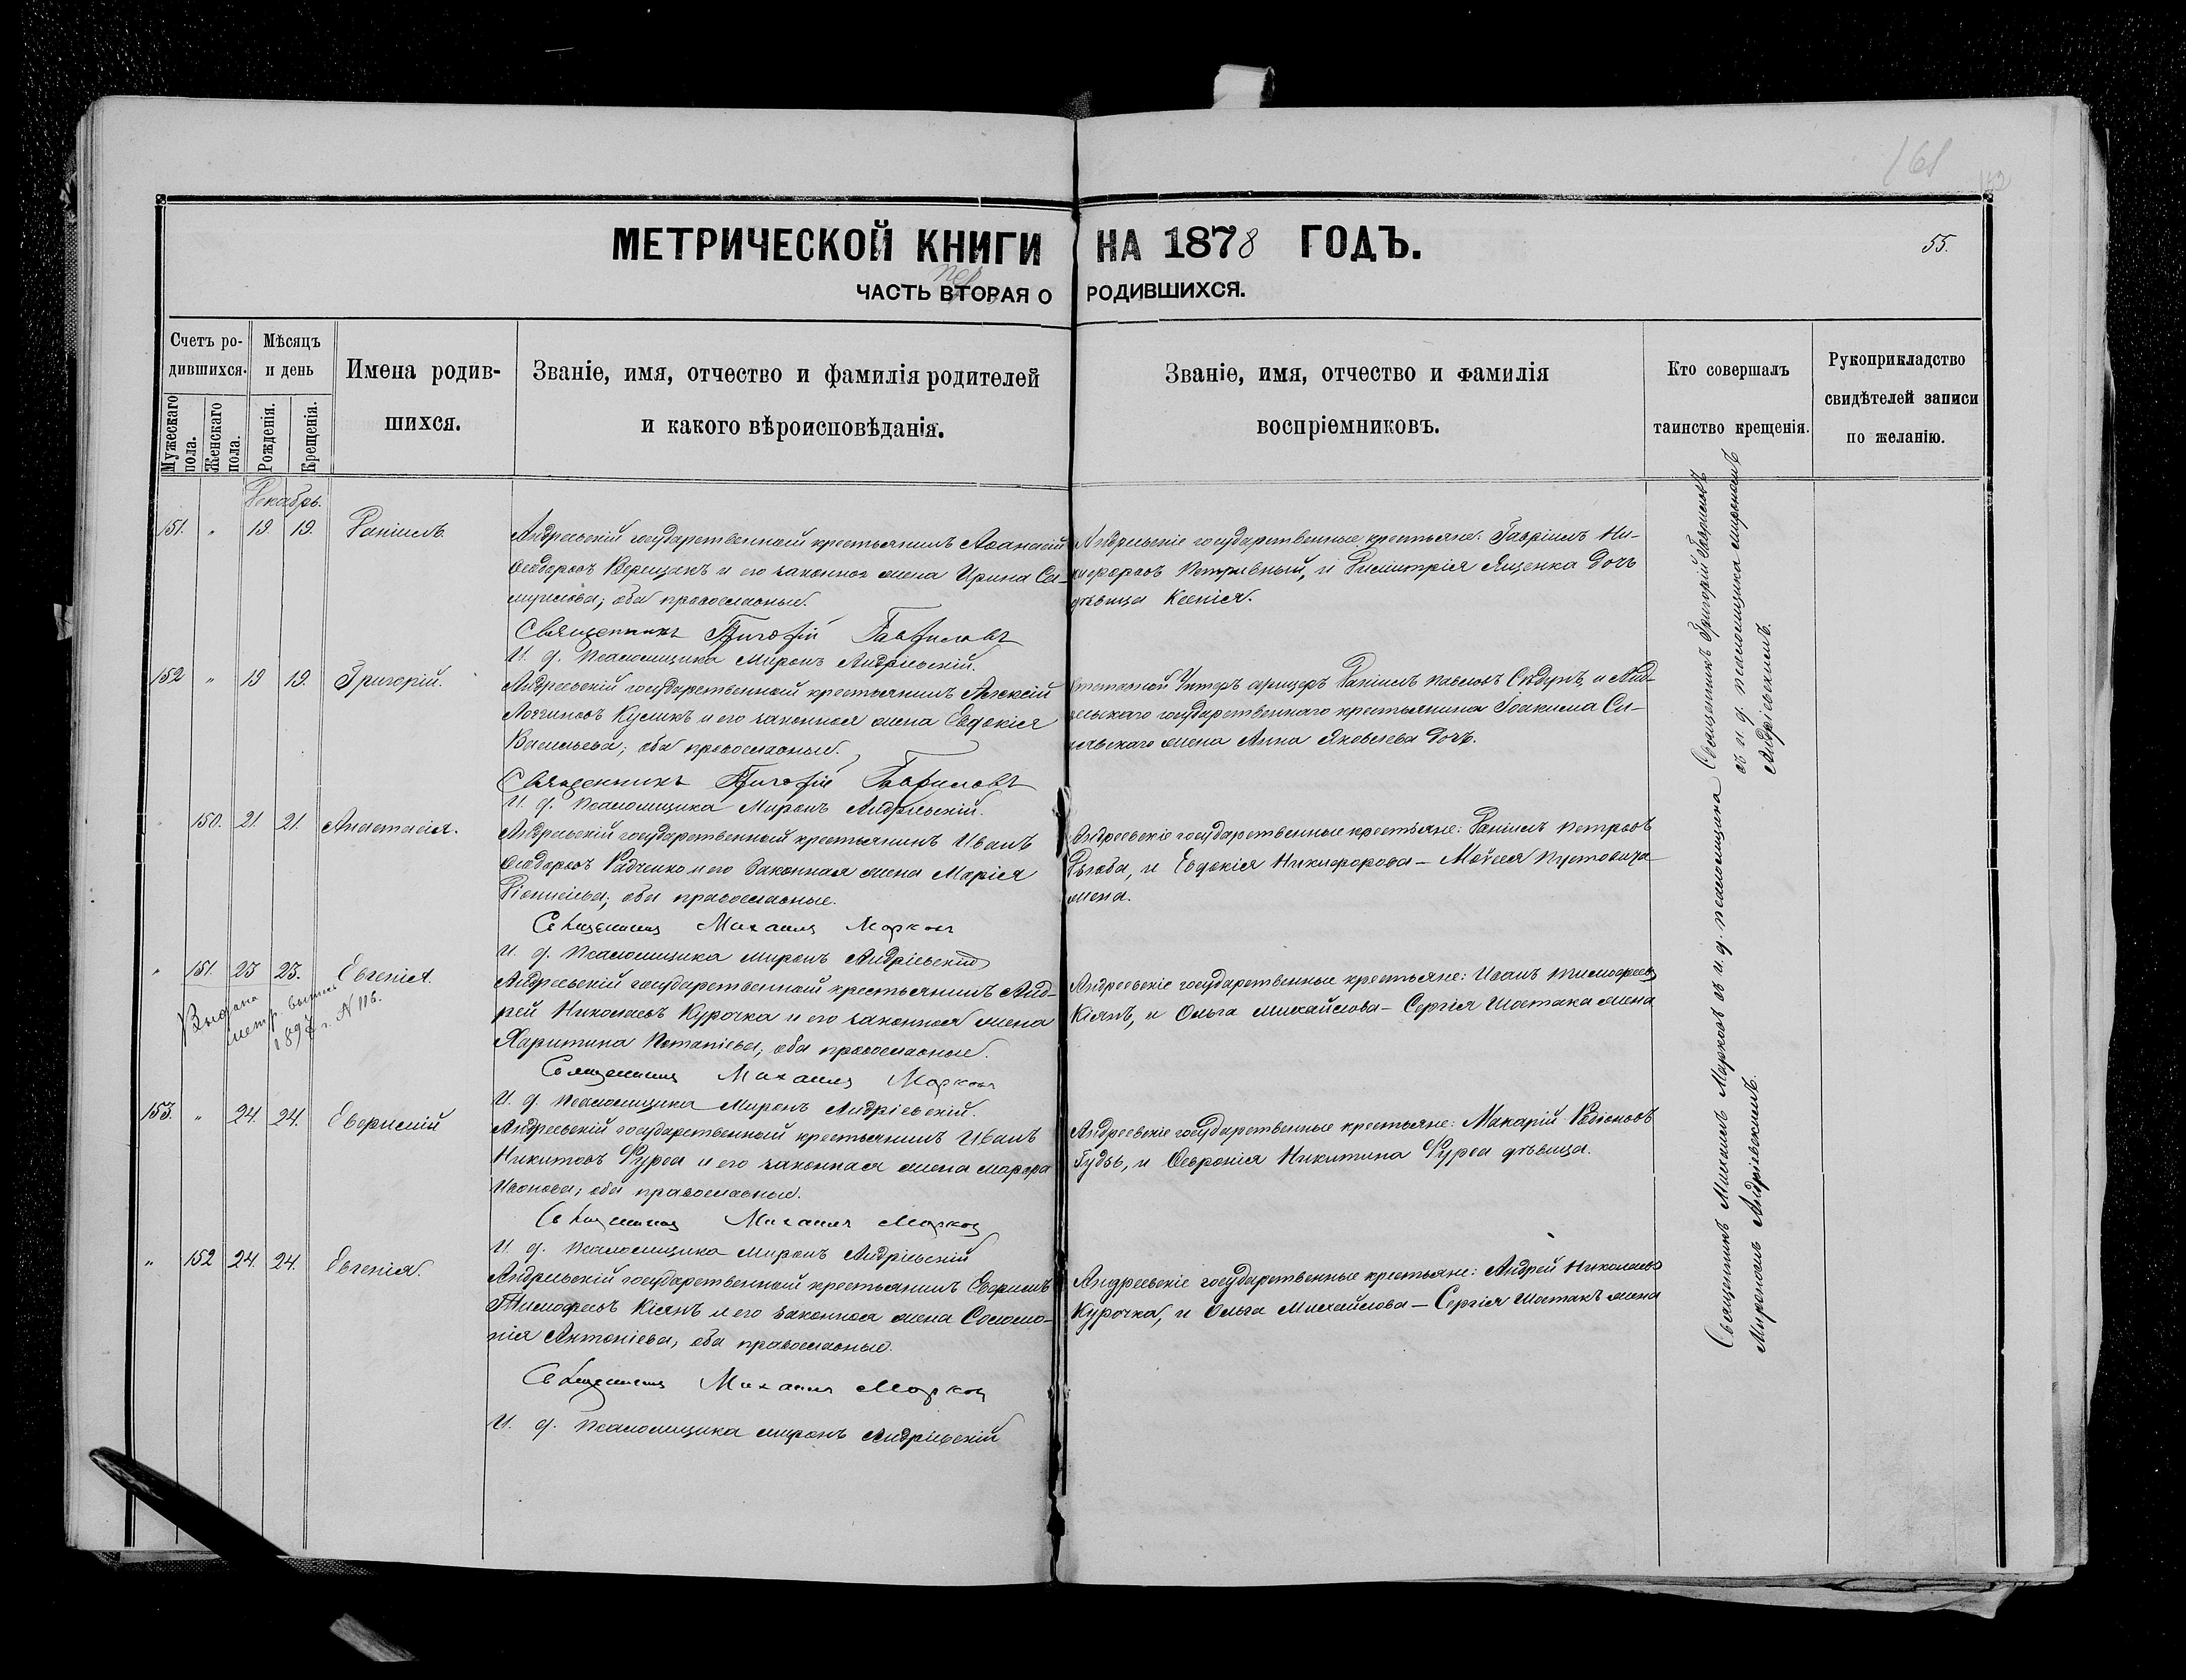 161
МЕТРИЧЕСКОЙ КНИГИ НА 1878 ГОДЪ.
55.
ЧАСТЬ ВТОРАЯ О РОДИВШИХСЯ.
пер
Счетъ ро-
дившихся.
Мужескаго пола.
Женскаго пола.
Мѣсяцъ
и день
Рожденія.
Крещенія.
Имена родив-
шихся.
Званіе, имя, отчество и фамилія родителей
и какого вѣроисповѣданія.
Званіе, имя, отчество и фамилія
воспріемниковъ.
Кто совершалъ
таинство крещенія.
Рукоприкладство
свидѣтелей записи
по желанію.
Декабрь.
151. " 19. 19. Даніилъ
Андреевскій государственный крестьянинъ Афанасій
Феодоровъ Верещакъ и его законная жена Ирина Са-
муилова; оба православные.
Священникъ Григорій Гавриловъ
И. д. Псаломщика Миронъ Андріевскій.
Андреевскіе государственные крестьяне: Гавріилъ Ни-
кифоровъ Петривный, и Димитрія Яценка дочь
дѣвица Ксенія.
152 " 19 19. Григорій.
Андреевскій государственный крестьянинъ Алексій
Логгиновъ Куликъ и его законная жена Евдокія
Васильева; оба православные.
Священникъ Григорій Гавриловъ
И. д. Псаломщика Миронъ Андріевскій.
Отставной Унтеръ офицеръ Даніилъ Павловъ и Анд-
реевскаго государственнаго крестьянина Іоакима Си-
жена Анна Яковлева дочь.
150. 21. 21. Анастасія.
Андреевскій государственный крестьянинъ Иванъ
Феодоровъ Радченко и его Законная жена Марія
Діонисіева; оба православные.
Священникъ Михаилъ Марковъ
И. д. Псаломщика Миронъ Андріевскій
Андреевскіе государственные крестьяне: Даніилъ Петровъ
Дзюба, и Евдокія Никифорова - Моисея Пустовита
жена.
" 151. 23 23. Евгенія.
Выдана
метр. выпись
189 г. N 116.
Андреевскій государственный крестьянинъ Анд-
рей Николаевъ Курочка и его законная жена
Харитина Потапіева; оба православные.
Священникъ Михаилъ Марковъ
И. д. Псаломщика Миронъ Андріевскій.
Андреевскіе государственные крестьяне: Иванъ Тимофеевъ
Кіянъ, и Ольга Михайлова - Сергія Шостака жена
153. " 24. 24. Евфимій
Андреевскій государственный крестьянинъ Иванъ
Никитовъ Фурса и его законная жена Марфа
Иванова; оба православные.
Священникъ Михаилъ Марковъ
И. д. Псаломщика Миронъ Андріевскій
Андреевскіе государственные крестьяне: Макарій Родіоновъ
Гудзь, и Февронія Никитина Фурса дѣвица.
" 152 24. 24. Евгенія.
Андреевскій государственный крестьянинъ Евфимъ
Тимофеевъ Кіянъ и его законная жена Соломо-
нія Антоніева, оба православные.
Священникъ Михаилъ Марковъ
И. д. Псаломщика Миронъ Андріевскій
Андреевскіе государственные крестьяне: Андрей Николаевъ
Курочка, и Ольга Михайлова - Сергія Шостакъ жена
Священникъ Григорій Гавриловъ
съ и. д. псаломщика Мирономъ
Андріевскимъ.
Священникъ Михаилъ Марковъ съ и. д. псаломщика
Мирономъ Андріевскимъ.